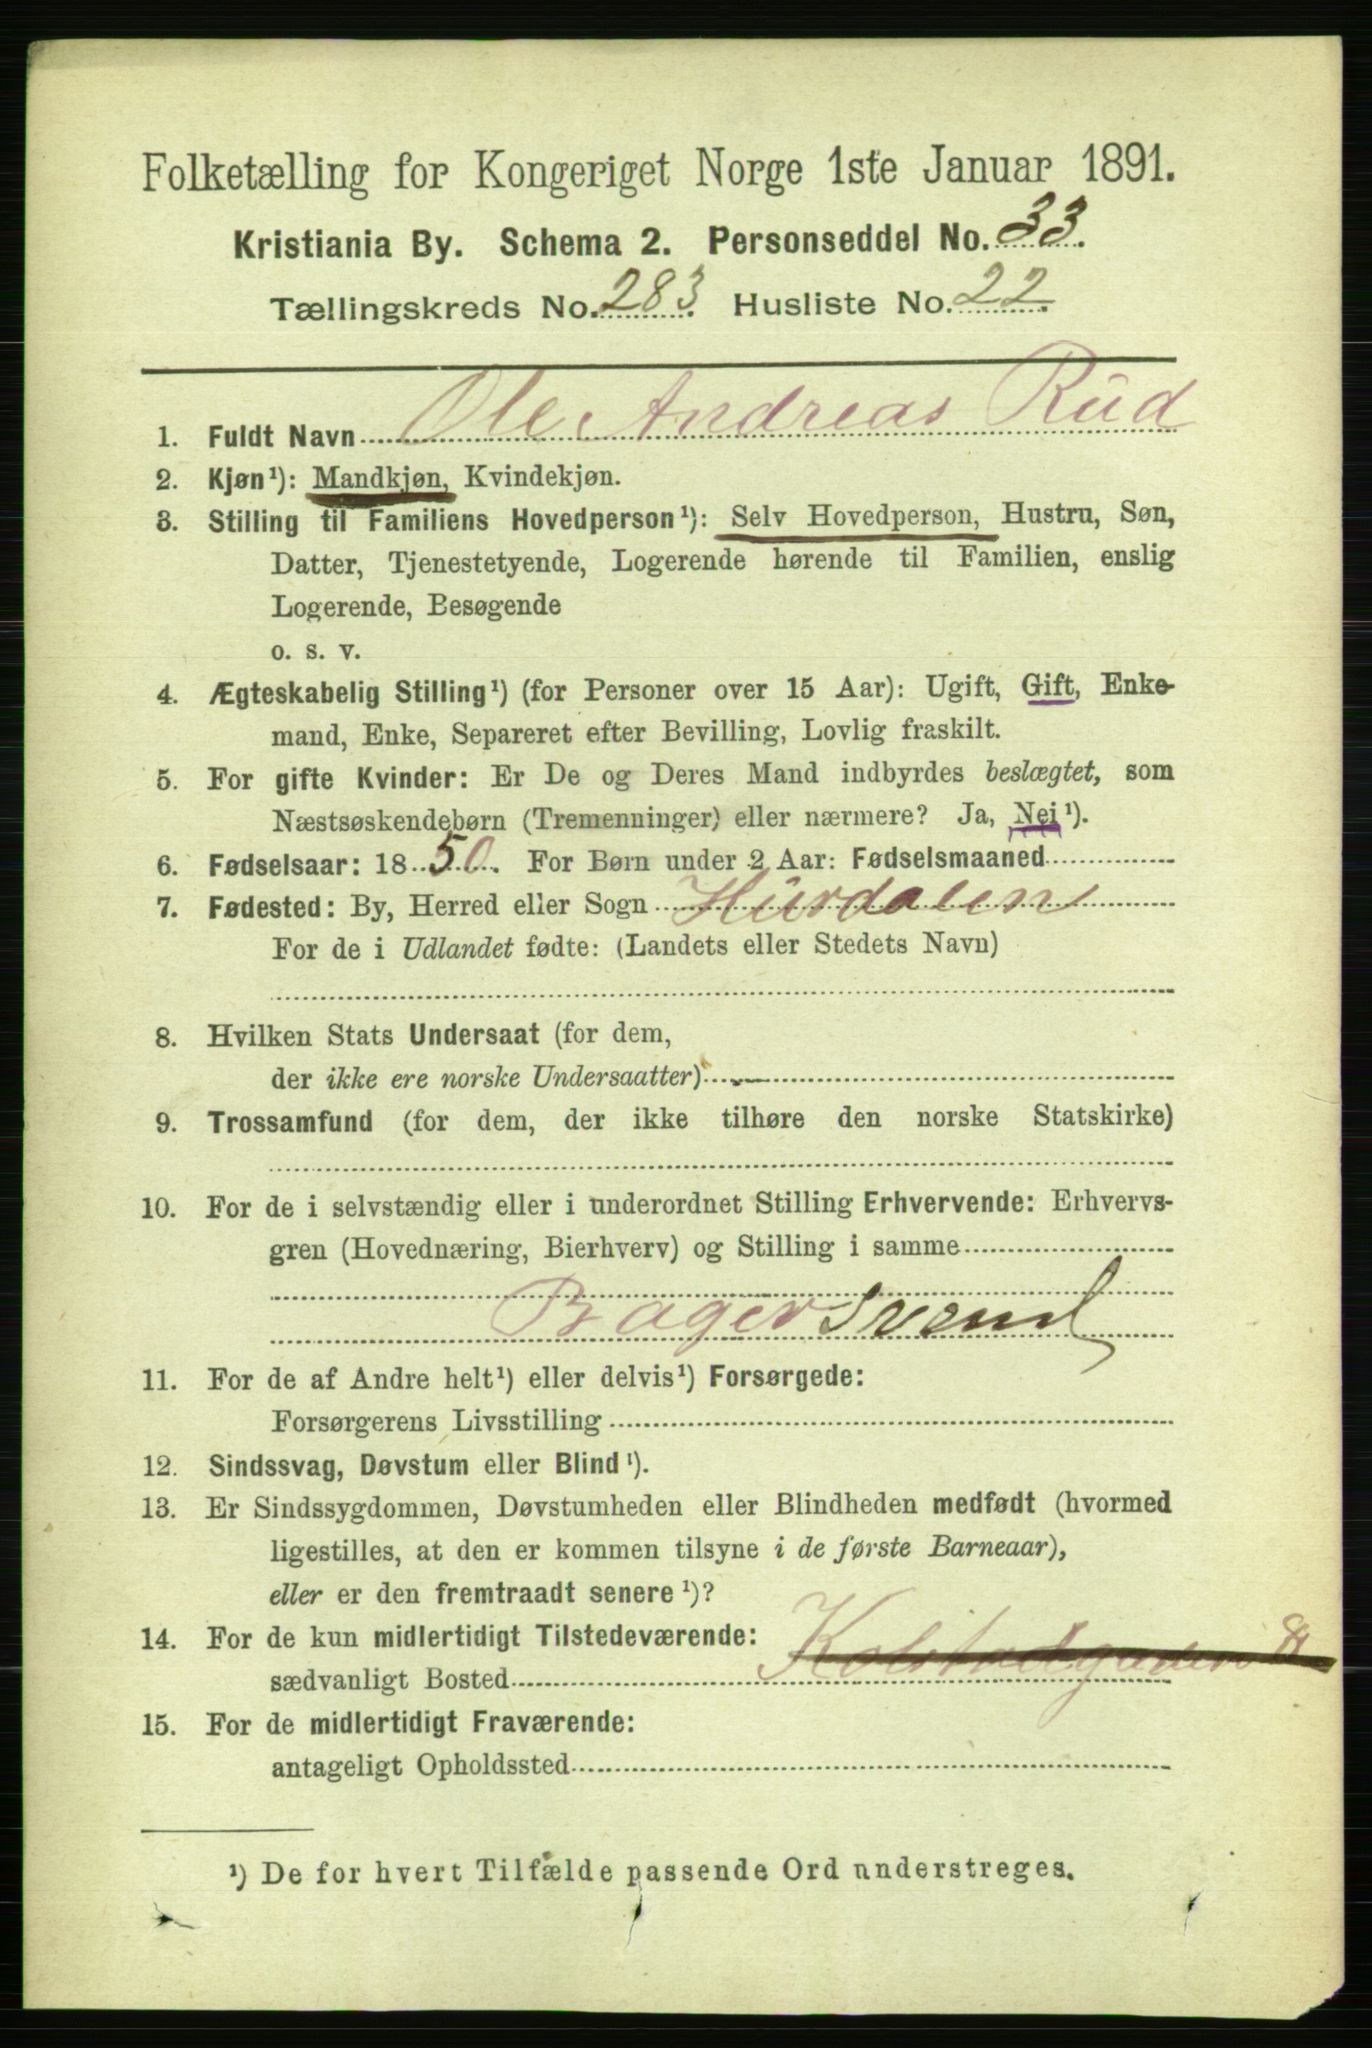 Folketælling for Kongeriget Norge 1ste Januar 1891.
Kristiania By. Schema 2. Personseddel No. 33.
Tællingskreds No. 283. Husliste No. 22.
1. Fuldt Navn Ole Andreas Rud
2. Kjøn¹): Mandkjøn, Kvindekjøn.
3. Stilling til Familiens Hovedperson¹): Selv Hovedperson, Hustru, Søn,
Datter, Tjenestetyende, Logerende hørende til Familien, enslig
Logerende, Besøgende
o. s. v.
4. Ægteskabelig Stilling¹) (for Personer over 15 Aar): Ugift, Gift, Enke-
mand, Enke, Separeret efter Bevilling, Lovlig fraskilt.
5. For gifte Kvinder: Er De og Deres Mand indbyrdes beslægtet, som
Næstsøskendebørn (Tremenninger) eller nærmere? Ja, Nei¹).
6. Fødselsaar: 1850. For Børn under 2 Aar: Fødselsmaaned
7. Fødested: By, Herred eller Sogn Hurdalen
For de i Udlandet fødte: (Landets eller Stedets Navn)
8. Hvilken Stats Undersaat (for dem,
der ikke ere norske Undersaatter)
9. Trossamfund (for dem, der ikke tilhøre den norske Statskirke)
10. For de i selvstændig eller i underordnet Stilling Erhvervende: Erhvervs-
gren (Hovednæring, Bierhverv) og Stilling i samme
Bagersvend
11. For de af Andre helt¹) eller delvis¹) Forsørgede:
Forsørgerens Livsstilling
12. Sindssvag, Døvstum eller Blind¹).
13. Er Sindssygdommen, Døvstumheden eller Blindheden medfødt (hvormed
ligestilles, at den er kommen tilsyne i de første Barneaar),
eller er den fremtraadt senere¹)?
14. For de kun midlertidigt Tilstedeværende:
sædvanligt Bosted Kolstadgaden
15. For de midlertidigt Fraværende:
antageligt Opholdssted
¹) De for hvert Tilfælde passende Ord understreges.